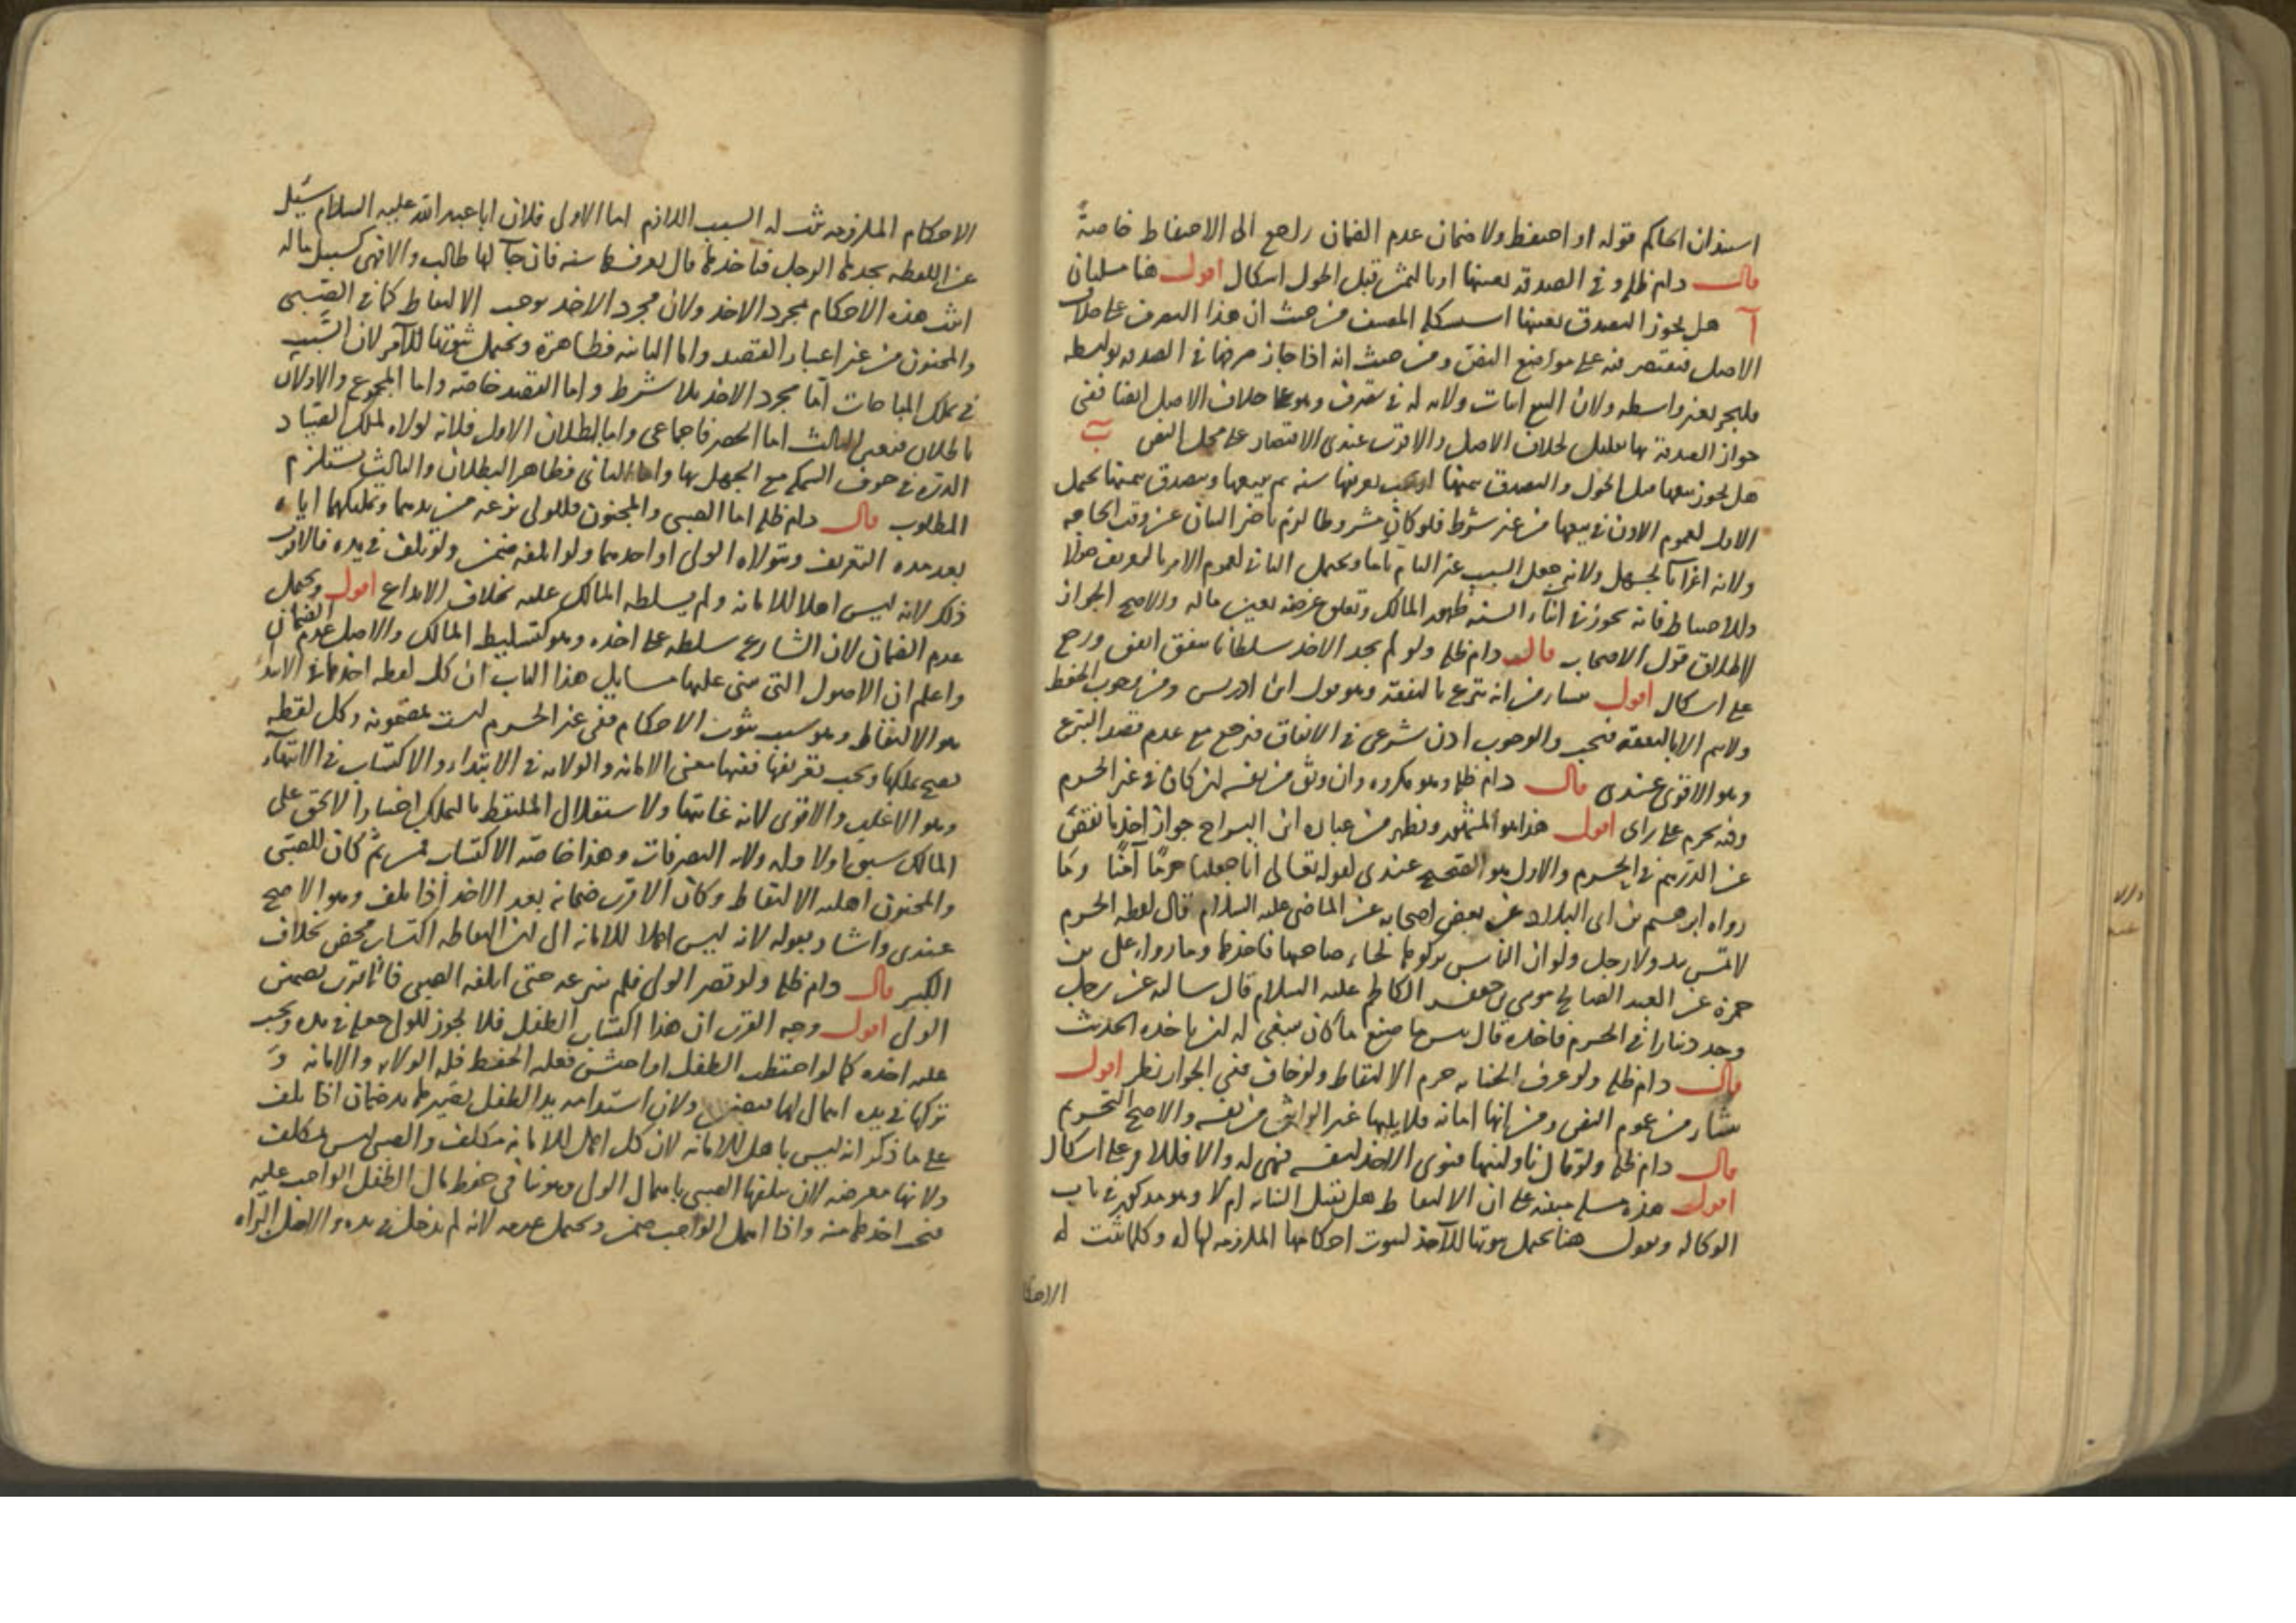 استیذان الحاکم قوله او احتفظ ولا ضمان عدم الضمان راجع الی الاحتفاظ خاصةً
قال دام ظله و فی الصدقه بعینها او بالثمن قبل الحول اشکال اقول هنا مسلتان
آ هل یجوز التصدق بعینها استشکله المصنف من حیث ان هذا التصرف علی خلاف
الاصل فیقتصر فیه علی مواضع النص ومن حیث انه اذا جاز صرفها فی الصدقه بواسطه
فلیجز بغیر واسطه ولان البیع اثبات ولایه له فی تصرف وهو علی خلاف الاصل ایضا ففی
جواز الصدقة بها تقلیل لخلاف الاصل والاقرب عندی الاقتصار علی محل النص ب
هل یجوز بیعها قبل الحول والتصدق بثمنها او یجب تعریفها سنه ثم یبیعها ویتصدق بثمنها یحتمل
الاول لعموم الاذن فی بیعها من غیر شرط فلو کان مشروطا لزم تاخیر البیان عن وقت الحاجه
ولانه اغراآ بالجهل ولانه جعل السبب غیر التام تاما ویحتمل الثانی لعموم الامر بالتعریف حولا
وللاحتیاط فانه یجوز فی اثنآء السنه ظهور المالک وتعلق غرضه بعین ماله والاصح الجواز
لاطلاق قول الاصحاب قال دام ظله ولو لم یجد الاخذ سلطانا ینفق انفق ورجع
علی اشکال اقول ینشا من انه تبرع بالنفقة وهو قول ابن ادریس ومن وجوب الحفظ
ولا یتم الا بالنفقه فتجب والوجوب اذن شرعی فی الانفاق فیرجع مع عدم قصد التبرع
وهو الاقوی عندی قال دام ظله وهو مکروه وان وثق من نفسه لن کان فی غیر الحرم
وفیه یحرم علی رای اقول هذا هو المشهور ویظهر من عباره ابن البراج جواز اخذ ما نقص
عن الدرهم فی الحرم والاول هو الصحیح عندی لقوله تعالی انا جعلنا حرمًا آمنًا وما
رواه ابرهیم بن ابی البلاد عن بعض اصحابه عن الماضی علیه السلام قال لقطه الحرم
لا تمس بید ولا رجل ولو ان الناس ترکوها لجاء صاحبها فاخذها وما رواه علی بن
حمزه عن العبد الصالح موسی بن جعفر الکاظم علیه السلام قال سالته عن رجل
وجد دینارا فی الحرم فاخذه قال بئس ما صنع ما کان ینبغی له لن یاخذه الحدیث
قال دام ظله ولو عرف الخیانه حرم الالتقاط ولو خاف ففی الجواز نظر اقول
ینشا من عموم النص ومن انها امانه فلا یلیها غیر الواثق من نفسه والاصح التحریم
قال دام ظله ولو قال ناولنیها فنوی الاخذ لنفسه فهی له والا فللامر علی اشکال
اقول هذه مسله مبنیه علی ان الالتقاط هل تقبل النیابه ام لا وهو مذکور فی باب
الوکاله ونقول هنا یحتمل ثبوتها للآخذ لثبوت احکامها الملازمه لها له وکلما ثبت له
الاحکا
الاحکام الملزومه ثبت له السبب اللازم اما الاولی فلان ابا عبد الله علیه السلام سئل
عن اللقطه یجدها الرجل فیاخذها قال یعرفها سنه فان جآ لها طالب والا فهی کسبیل ماله
اثبت هذه الاحکام بمجرد الاخذ ولان مجرد الاخذ یوجب الالتقاط کما فی الصبی
والمجنون من غیر اعتبار القصد واما الثانیه فظاهرة ویحتمل ثبوتها للآمر لان السبب
فی تملک المباحات اما مجرد الاخذ بلا شرط واما القصد خاصه واما المجموع والاولان
باطلان فتعین الثالث اما الحصر فاجماعی واما بطلان الاول فلانه لولاه لملک الصیاد
الدرة فی جوف السمکه مع الجهل بها واما الثانی فظاهر البطلان والثالث یستلزم
المطلوب قال دام ظله اما الصبی والمجنون فللولی نزعه من یدهما وتملیکهما ایاه
بعد مده التعریف ویتولاه الولی او احدهما ولو اتلفه ضمن ولو تلف فی یده فالاقرب
ذلک لانه لیس اهلا للامانه ولم یسلطه المالک علیه بخلاف الایداع اقول ویحتمل
عدم الضمان لان الشارع سلطه علی اخذه وهو کتسلیط المالک والاصل عدم الضمان
واعلم ان الاصول التی بنی علیها مسایل هذا الباب ان کل لقطه اخذها فی الابتدآء
هو الالتقاط وهو سبب ثبوت الاحکام ففی غیر الحرم لیست بمضمونه وکل لقطه
یصح تملکها ویجب تعریفها ففیها معنی الامانه والولایه فی الابتداء والاکتساب فی الانتهآء
وهو الاغلب والاقوی لانه غایتها ولاستقلال الملتقط بالتملک اختیارا لا بحق علی
المالک سبق اولا وله ولایه التصرفات وهذا خاصه الاکتساب فمن ثم کان للصبی
والمجنون اهلیه الالتقاط وکان الاقرب ضمانه بعد الاخذ اذا تلف وهو الاصح
عندی واشار بقوله لانه لیس اهلا للامانه الی لن التقاطه اکتساب محض بخلاف
الکبیر قال دام ظله ولو قصر الولی فلم ینزعه حتی اتلفه الصبی فالاقرب تضمین
الولی اقول وجه القرب ان هذا اکتساب الطفل فلا یجوز للولی جعله فی یده ویجب
علیه اخذه کما لو احتطب الطفل او احتش فعلیه الحفظ فله الولایه والامانه و
ترکها فی یده اهمال لها فیضمن ولان استدامه ید الطفل یصیرها ید ضمان اذا تلف
علی ما ذکر انه لیس باهل للامانه لان کل اهل للامانه مکلف والصبی لیس بمکلف
ولانها معرضه لان یتلفها الصبی باهمال الولی وهو ینافی حفظ مال الطفل الواجب علیه
فیجب اخذها منه واذا اهمل الواجب ضمن ویحتمل عدمه لانه لم یدخل فی یده والاصل البراه